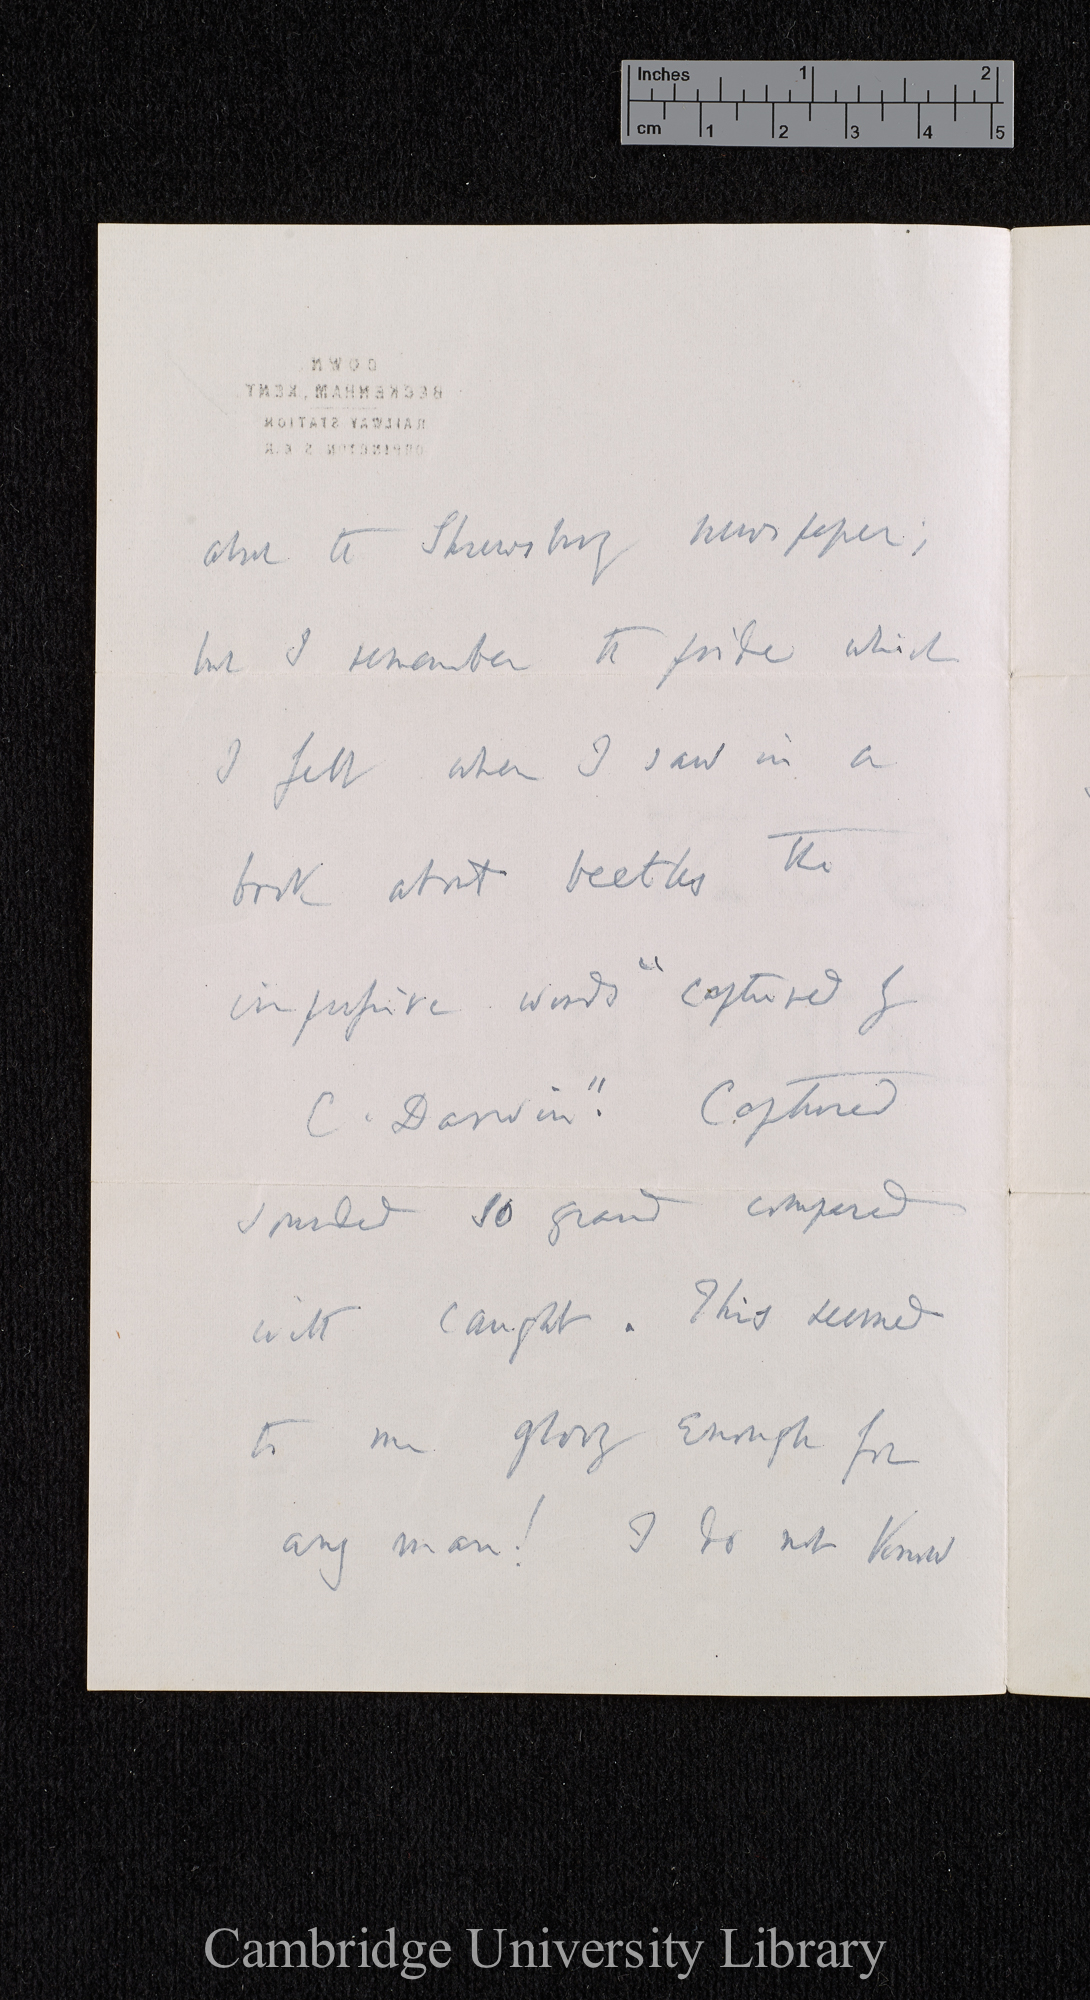 Inches 1 2
cm 1 2 3 4 5
DOWN
BECKENHAM, KENT.
RAILWAY STATION
ORPINGTON S.E.R.
about the Shrewsbury newspaper;
but I remember the pride which
I felt when I saw in a
book about beetles the
impressive words "captured by
C. Darwin". Captured
sounded so grand compared
with caught. This seemed
to me glory enough for
any man! I do not know
Cambridge University Library